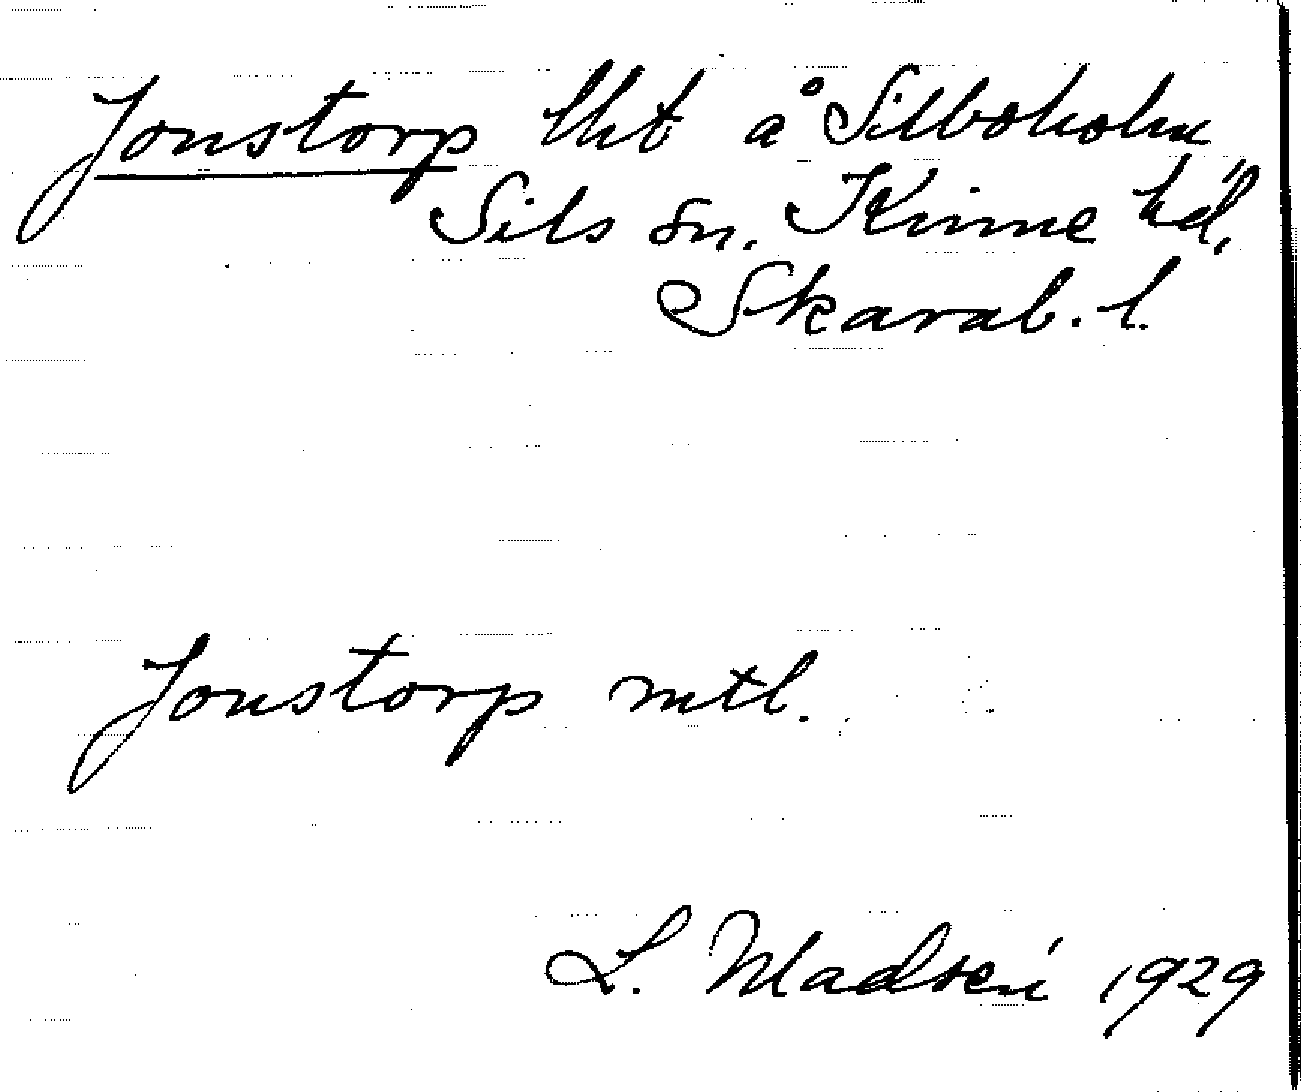 Jonstorp lht å Silboholm
Sils sn. Kinne hd,
Skarab. l.
Jonstorp mtl.
L. Madsén 1929